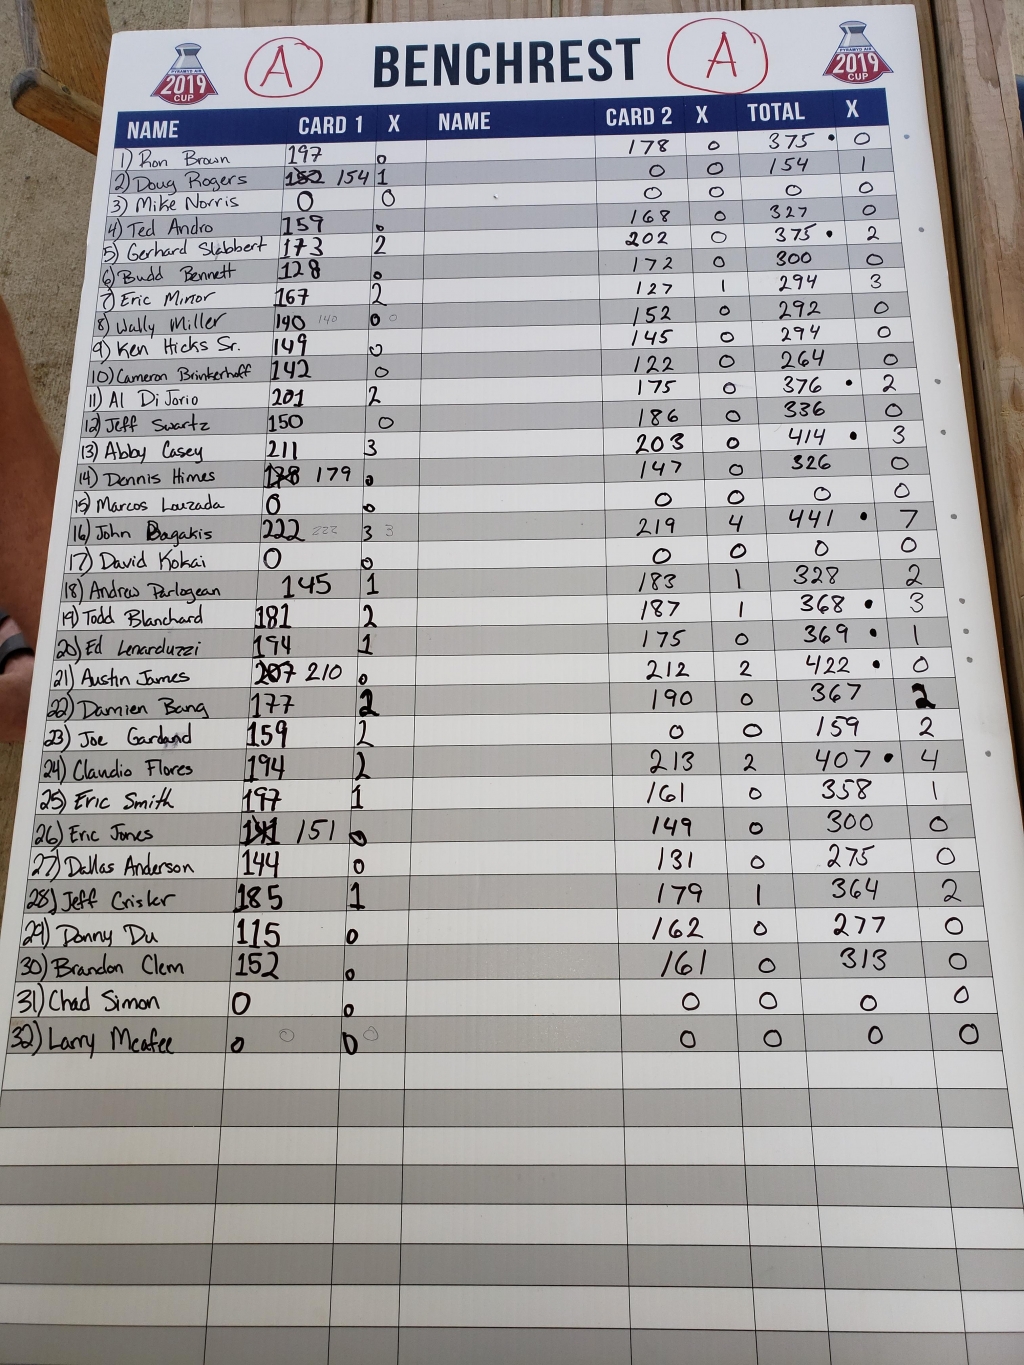 PYRAMYD AIR 2019 CUP A BENCHREST A PYRAMYD AIR 2019 CUP
NAME CARD 1 X NAME CARD 2 X TOTAL X
1) Ron Brown 197 0 178 0 375 • 0
2) Doug Rogers 154 1 0 0 154 1
3) Mike Norris 0 0 0 0 0 0
4) Ted Andro 159 0 168 0 327 0
5) Gerhard Slabbert 173 2 202 0 375 • 2
6) Budd Bennett 128 0 172 0 300 0
7) Eric Mirror 167 2 127 1 294 3
8) Wally Miller 140 140 0 0 152 0 292 0
9) Ken Hicks Sr. 149 0 145 0 294 0
10) Cameron Brinkerhoff 142 0 122 0 264 0
11) Al DiJorio 201 2 175 0 376 • 2
12) Jeff Swartz 150 0 186 0 336 0
13) Abby Casey 211 3 203 0 414 • 3
14) Dennis Himes 179 0 147 0 326 0
15) Marcos Louzada 0 0 0 0 0 0
16) John Bagakis 222 222 3 3 219 4 441 • 7
17) David Kokai 0 0 0 0 0 0
18) Andrew Parlogean 145 1 183 1 328 2
19) Todd Blanchard 181 2 187 1 368 • 3
20) Ed Lenarduzzi 194 1 175 0 369 • 1
21) Austin James 207 210 0 212 2 422 • 0
22) Damien Bang 177 2 190 0 367 2
23) Joe Gardand 159 2 0 0 159 2
24) Claudio Flores 194 2 213 2 407 • 4
25) Eric Smith 197 1 161 0 358 1
26) Eric Jones 151 0 149 0 300 0
27) Dallas Anderson 144 0 131 0 275 0
28) Jeff Crisler 185 1 179 1 364 2
29) Donny Du 115 0 162 0 277 0
30) Brandon Clem 152 0 161 0 313 0
31) Chad Simon 0 0 0 0 0 0
32) Larry Mcafee 0 0 0 0 0 0 0 0